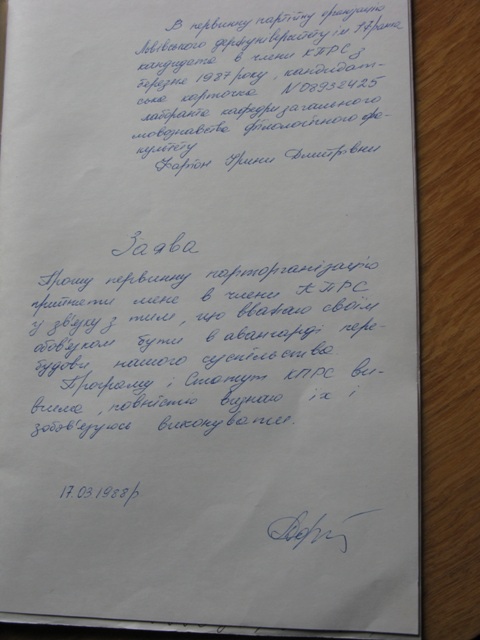 В первинну партійну організацію
Львівського держуніверситету ім. І. Франка
кандидата в члени КПРС з
березня 1987 року, кандидат-
ська карточка N 08932425
лаборанта кафедри загального
мовознавства філологічного фа-
культету
Ірини Дмитрівни
Заява
Прошу первинну парторганізацію
прийняти мене в члени КПРС
у зв'язку з тим, що вважаю своїм
обов'язком бути в авангарді пере-
будови нашого суспільства.
Програму і Статут КПРС ви-
вчила, повністю визнаю їх і
зобов'язуюсь виконувати.
17.03.1988р.